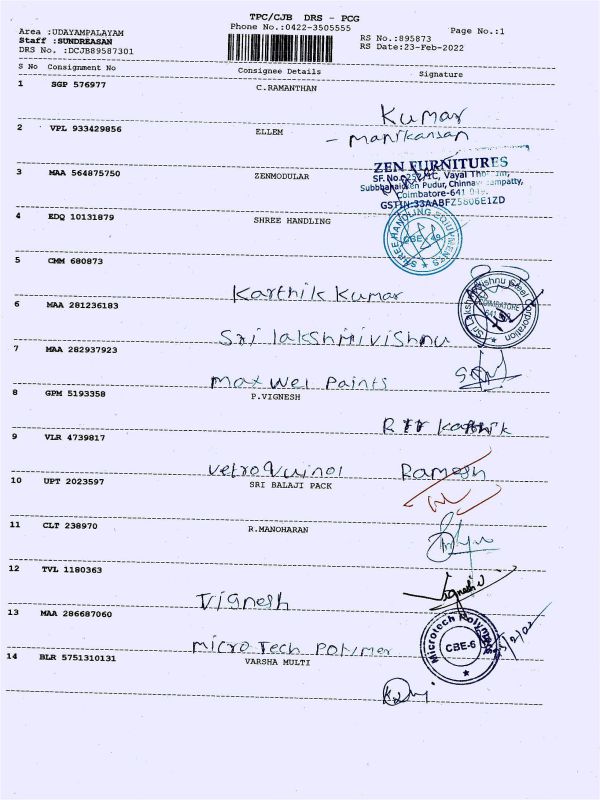 TPC/CJB DRS - PCG
Area :UDAYAMPALAYAM Phone No.:0422-3505555 Page No.:1
Staff :SUNDREASAN RS No.:895873
DRS No. :DCJB89587301 RS Date:23-Feb-2022
S No Consignment No Consignee Details Signature
1 SGP 576977 C.RAMANTHAN
Kumar
2 VPL 933429856 ELLEM
- manikansan
3 MAA 564875750 ZENMODULAR
ZEN FURNITURES
SF.No. Vayal
Pudur, Chinna
Coimbatore-641
GSTIN:33AABFZ5806E1ZD
4 EDQ 10131879 SHREE HANDLING
SHREE HANDLING EQUIPMENTS
CBE 49
5 CMM 680873
Karthik Kumar
6 MAA 281236183
Sri Lakshmi Vishnu Steel Corporation
COIMBATORE
Sri lakshmivishnu
7 MAA 282937923
maxwel paints
8 GPM 5193358 P.VIGNESH
karthik
9 VLR 4739817
Ramesh
10 UPT 2023597 SRI BALAJI PACK
11 CLT 238970 R.MANOHARAN
12 TVL 1180363
Vignesh
13 MAA 286687060
Microtech Polymers
CBE-6
micro Tech polymer
14 BLR 5751310131 VARSHA MULTI